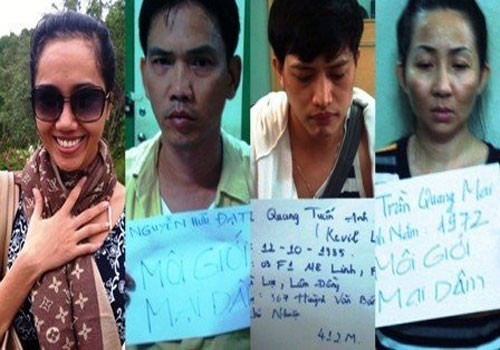 NGUYỄN HỮU ĐẠT
MÔI GIỚI
MẠI DÂM
Quang Tuấn Anh
(Kevil
12-10-1985
F1
Lâm Đồng
: 167 Huỳnh Văn
Nhuận
412M.
Trần Quang Mai
Năm: 1972
MÔI GIỚI
MẠI DÂM